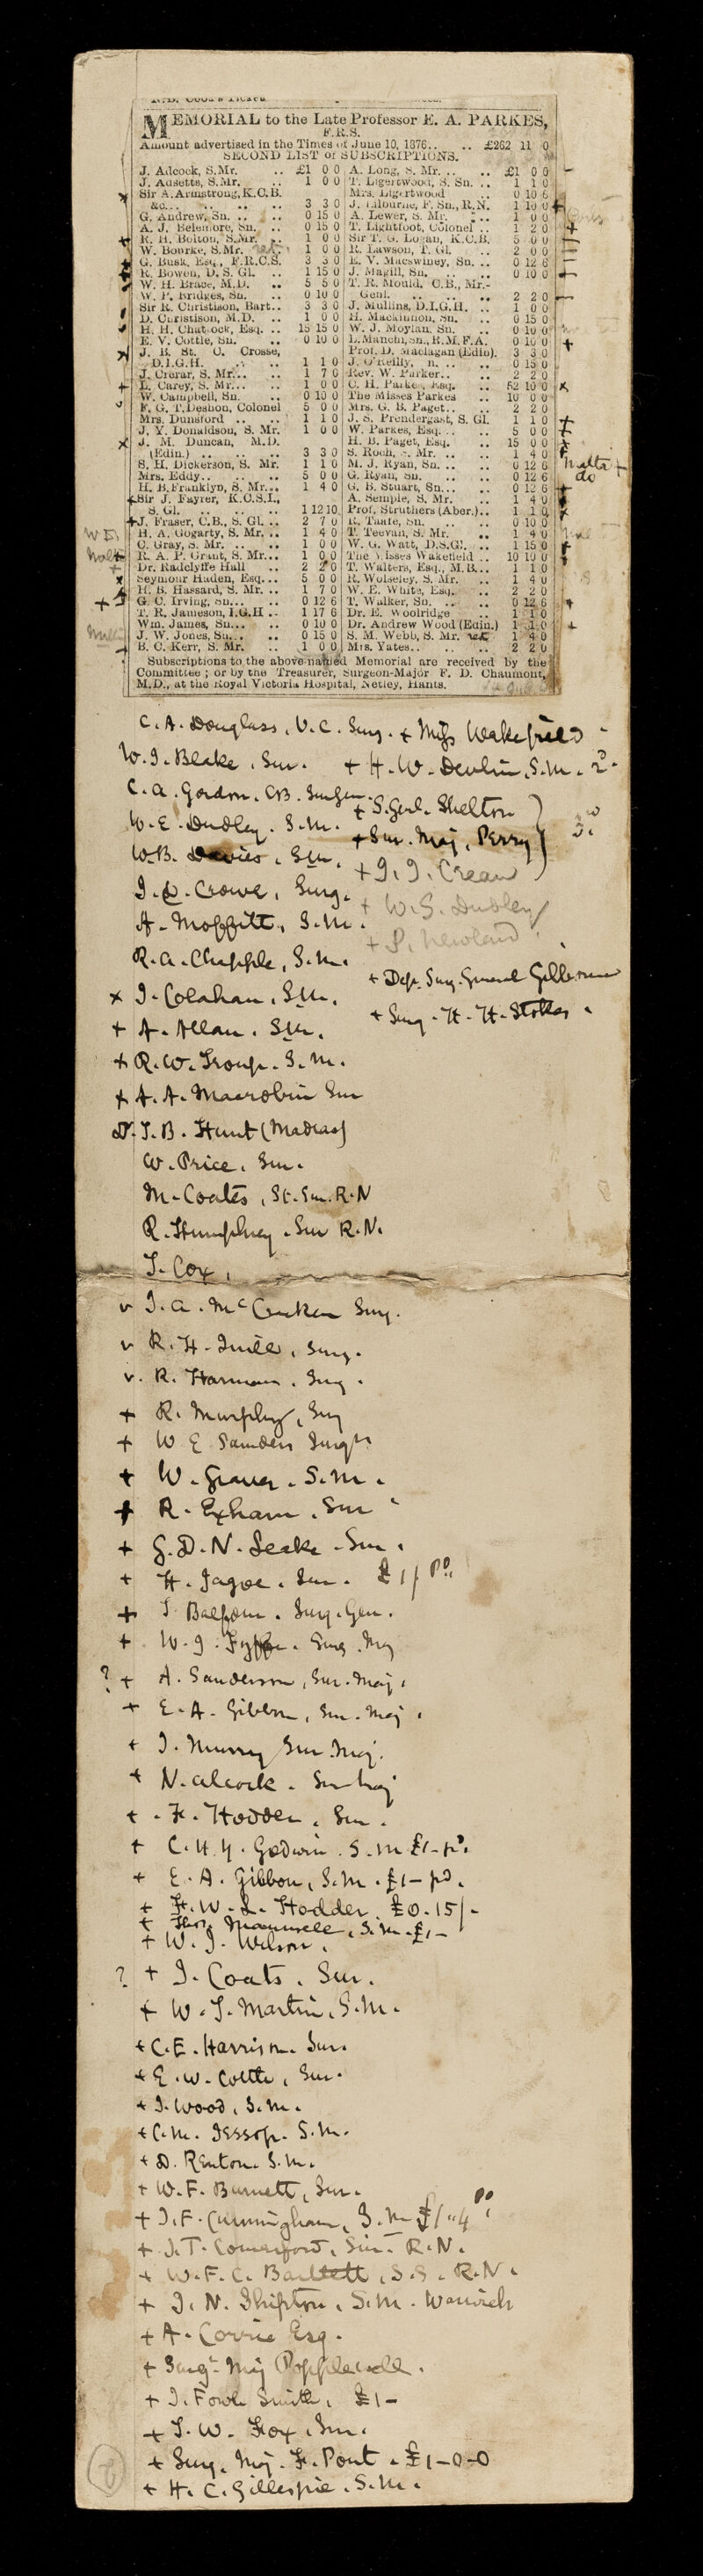 MEMORIAL to the Late Professor E. A. PARKES,
F.R.S.
Amount advertised in the Times of June 10, 1876.. .. £262 11 0
SECOND LIST of SUBSCRIPTIONS.
J. Adcock, S.Mr. .. £1 0 0
J. Adsetts, S.Mr. .. 1 0 0
Sir A. Armstrong, K.C.B.
&c... .. .. .. 3 3 0
G. Andrew, Sn. .. .. 0 15 0
A. J. Belemore, Sn. .. 0 15 0
R. H. Bolton, S.Mr. .. 1 0 0
W. Bourke, S.Mr. .. 1 0 0
G. Busk, Esq., F.R.C.S. 3 3 0
R. Bowen, D. S. Gl. .. 1 15 0
W. H. Brace, M.D. .. 5 5 0
W. P. Bridges, Sn. .. 0 10 0
Sir R. Christison, Bart.. 3 3 0
D. Christison, M.D. .. 1 0 0
H. H. Chattock, Esq. .. 15 15 0
E. V. Cottle, Sn. .. 0 10 0
J. B. St. C. Crosse,
D.I.G.H. .. .. 1 1 0
J. Crerar, S. Mr... .. 1 7 0
L. Carey, S. Mr... .. 1 0 0
W. Campbell, Sn. .. 0 10 0
F. G. T. Deshon, Colonel 5 0 0
Mrs. Dunsford .. .. 1 1 0
J. Y. Donaldson, S. Mr. 1 0 0
J. M. Duncan, M.D.
(Edin.) .. .. .. 3 3 0
S. H. Dickerson, S. Mr. 1 1 0
Mrs. Eddy.. .. .. 5 0 0
H. B. Franklyn, S. Mr... 1 4 0
Sir J. Fayrer, K.C.S.I.,
S. Gl. .. .. .. 1 12 10
J. Fraser, C.B., S. Gl. .. 2 7 0
H. A. Gogarty, S. Mr. .. 1 4 0
C. Gray, S. Mr. .. 1 0 0
R. A. P. Grant, S. Mr... 1 0 0
Dr. Radclyffe Hall .. 2 2 0
Seymour Haden, Esq... 5 0 0
H. B. Hassard, S. Mr. .. 1 7 0
G. C. Irving, Sn... .. 0 12 6
T. R. Jameson, I.G.H .. 1 17 6
Wm. James, Sn... .. 0 10 0
J. W. Jones, Sn... .. 0 15 0
B. C. Kerr, S. Mr. .. 1 0 0
A. Long, S. Mr. .. .. £1 0 0
T. Ligertwood, S. Sn. .. 1 1 0
Mrs. Ligertwood .. 0 10 6
J. Lilburne, F. Sn., R.N. 1 10 0
A. Lewer, S. Mr. .. 1 0 0
T. Lightfoot, Colonel .. 1 2 0
Sir T. G. Logan, K.C.B. 5 0 0
R. Lawson, T. Gl. .. 2 0 0
E. V. Macswiney, Sn. .. 0 12 6
J. Magill, Sn. .. .. 0 10 0
T. R. Mould, C.B., Mr.-
Genl. .. .. .. 2 2 0
J. Mullins, D.I.G.H. .. 1 0 0
H. Mackinnon, Sn. .. 0 15 0
W. J. Moylan, Sn. .. 0 10 0
L. Manchi, Sn., R.M.F.A. 0 10 0
Prof. D. Maclagan (Edin). 3 3 0
J. O'Reilly, n. .. .. 0 15 0
Rev. W. Parker.. .. 2 2 0
C. H. Parkes, Esq. .. 52 10 0
The Misses Parkes .. 10 0 0
Mrs. G. B. Paget.. .. 2 2 0
J. S. Prendergast, S. Gl. 1 1 0
W. Parkes, Esq... .. 5 0 0
H. B. Paget, Esq. .. 15 0 0
S. Roch, S. Mr. .. .. 1 4 0
M. J. Ryan, Sn. .. .. 0 12 6
G. Ryan, Sn. .. .. 0 12 6
G. B. Stuart, Sn... .. 0 12 6
A. Semple, S. Mr. .. 1 4 0
Prof. Struthers (Aber.).. 1 1 0
R. Taafe, Sn. .. .. 0 10 0
T. Teevan, S. Mr. .. 1 4 0
W. G. Watt, D.S.Gl. .. 1 15 0
The Misses Wakefield .. 10 10 0
T. Walters, Esq., M.B... 1 1 0
R. Wolseley, S. Mr. .. 1 4 0
W. E. White, Esq. .. 2 2 0
T. Walker, Sn. .. .. 0 12 6
Dr. E. Woolridge .. 1 1 0
Dr. Andrew Wood (Edin.) 1 1 0
S. M. Webb, S. Mr. .. 1 4 0
Mrs. Yates.. .. .. 2 2 0
Malta +
do
Subscriptions to the above-named Memorial are received by the
Committee; or by the Treasurer, Surgeon-Major F. D. Chaumont,
M.D., at the Royal Victoria Hospital, Netley, Hants.
C. A. Douglass, V.C. Surg. + Miss Wakefield
W. J. Blake, Sur. + H. W. Devlin, S.M.
C. A. Gordon, CB. Surgeon
+ S. Genl. Shelton
W. E. Dudley. S.M.
+ Sur. Maj. Perry
W.B. Davies, S.M.
+ J. J. Crean
J. D. Crowe, Surg.
+ W. S. Dudley
A. Moffitt, S.M.
+ P. Newland
R. A. Chapple, S.M.
+ Dep. Surg. General Gilborne
x J. Colahan, S.M.
+ Surg. H. H. Stokes
+ A. Allan. S.M.
+ R. W. Troup. S.M.
+ A. A. Macrobin Sur
Dr. J. B. Hunt (Madras)
W. Price, Sur.
M. Coates, St. Sur. R.N
R. Humphrey. Sur R.N.
J. Cox,
v J. A. McCracken Surg.
v R. H. Quill, Surg.
v. R. Harman. Surg.
+ R. Murphy, Surg
+ W E Saunders Surgn
+ W. Graves. S.M.
+ R. Exham. Sur
+ G. D. N. Leake. Sur.
+ H. Jagoe. Sur. £1/ Pd.
+ T Balfour. Surg. Gen.
+ W. J. Fyffe. Surg. Maj
? + A. Sanderson, Sur. Maj.
+ E. A. Gibbon, Sur. Maj.
+ J. Murray Sur Maj.
+ N. Alcock. Sur Maj
+ F. Hodder. Sur.
+ C. H. Y. Godwin S.M £1-pd.
+ E. A. Gibbon, S.M. £1- pd.
+ F. W. L. Hodder. £0.15/-
+ Thos. Maunsell, S.M. £1-
+ W. J. Wilson.
? + J. Coats. Sur.
+ W. T. Martin, S.M.
+ C. E. Harrison. Sur.
+ E. W. Cottle, Sur.
+ J. Wood, S.M.
+ C. M. Jessop. S.M.
+ D. Renton. S.M.
+ W. F. Burnett, Sur.
+ J. F. Cunningham, S.M £1"4 pd
+ J. T. Comerford, Sur. R.N.
+ W. F. C. Bartlett, S.S. R.N.
+ J. N. Shipton, S.M. Warwick
+ A. Corrie Esq.
+ Surgn. Maj Popplewell.
+ J. Fowle Smith, £1-
+ T. W. Fox, Sur.
+ Surg. Maj. F. Pout. £1-0-0
+ H. C. Gillespie. S.M.